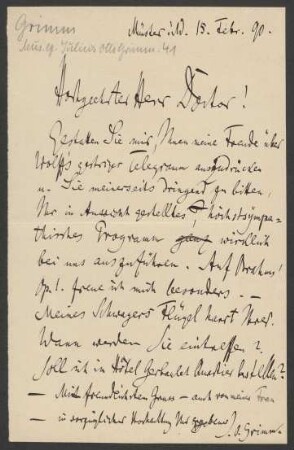 Grimm
Mus. ep. Julius Otto Grimm. 41
Münster i/W. 18. Febr. 90.
Hochgeehrter Herr Doctor!
Gestatten Sie mir, Ihnen meine Freude über
Wolffs gestriges Telegramm auszudrücken
u. Sie meinerseits dringend zu bitten,
Ihr in Aussicht gestelltes, höchstsympa=
thisches Programm ganz wirklich
bei uns auszuführen. Auf Brahms'
Op. 1. freue ich mich besonders. —
Meines Schwagers Flügel harrt Ihrer.
Wann werden Sie eintreffen?
Soll ich im Hôtel Quartier bestellen?
— Mit freundlichstem Gruss — auch von meiner Frau
— in vorzüglicher Hochachtung Ihr ergebener J. O. Grimm.